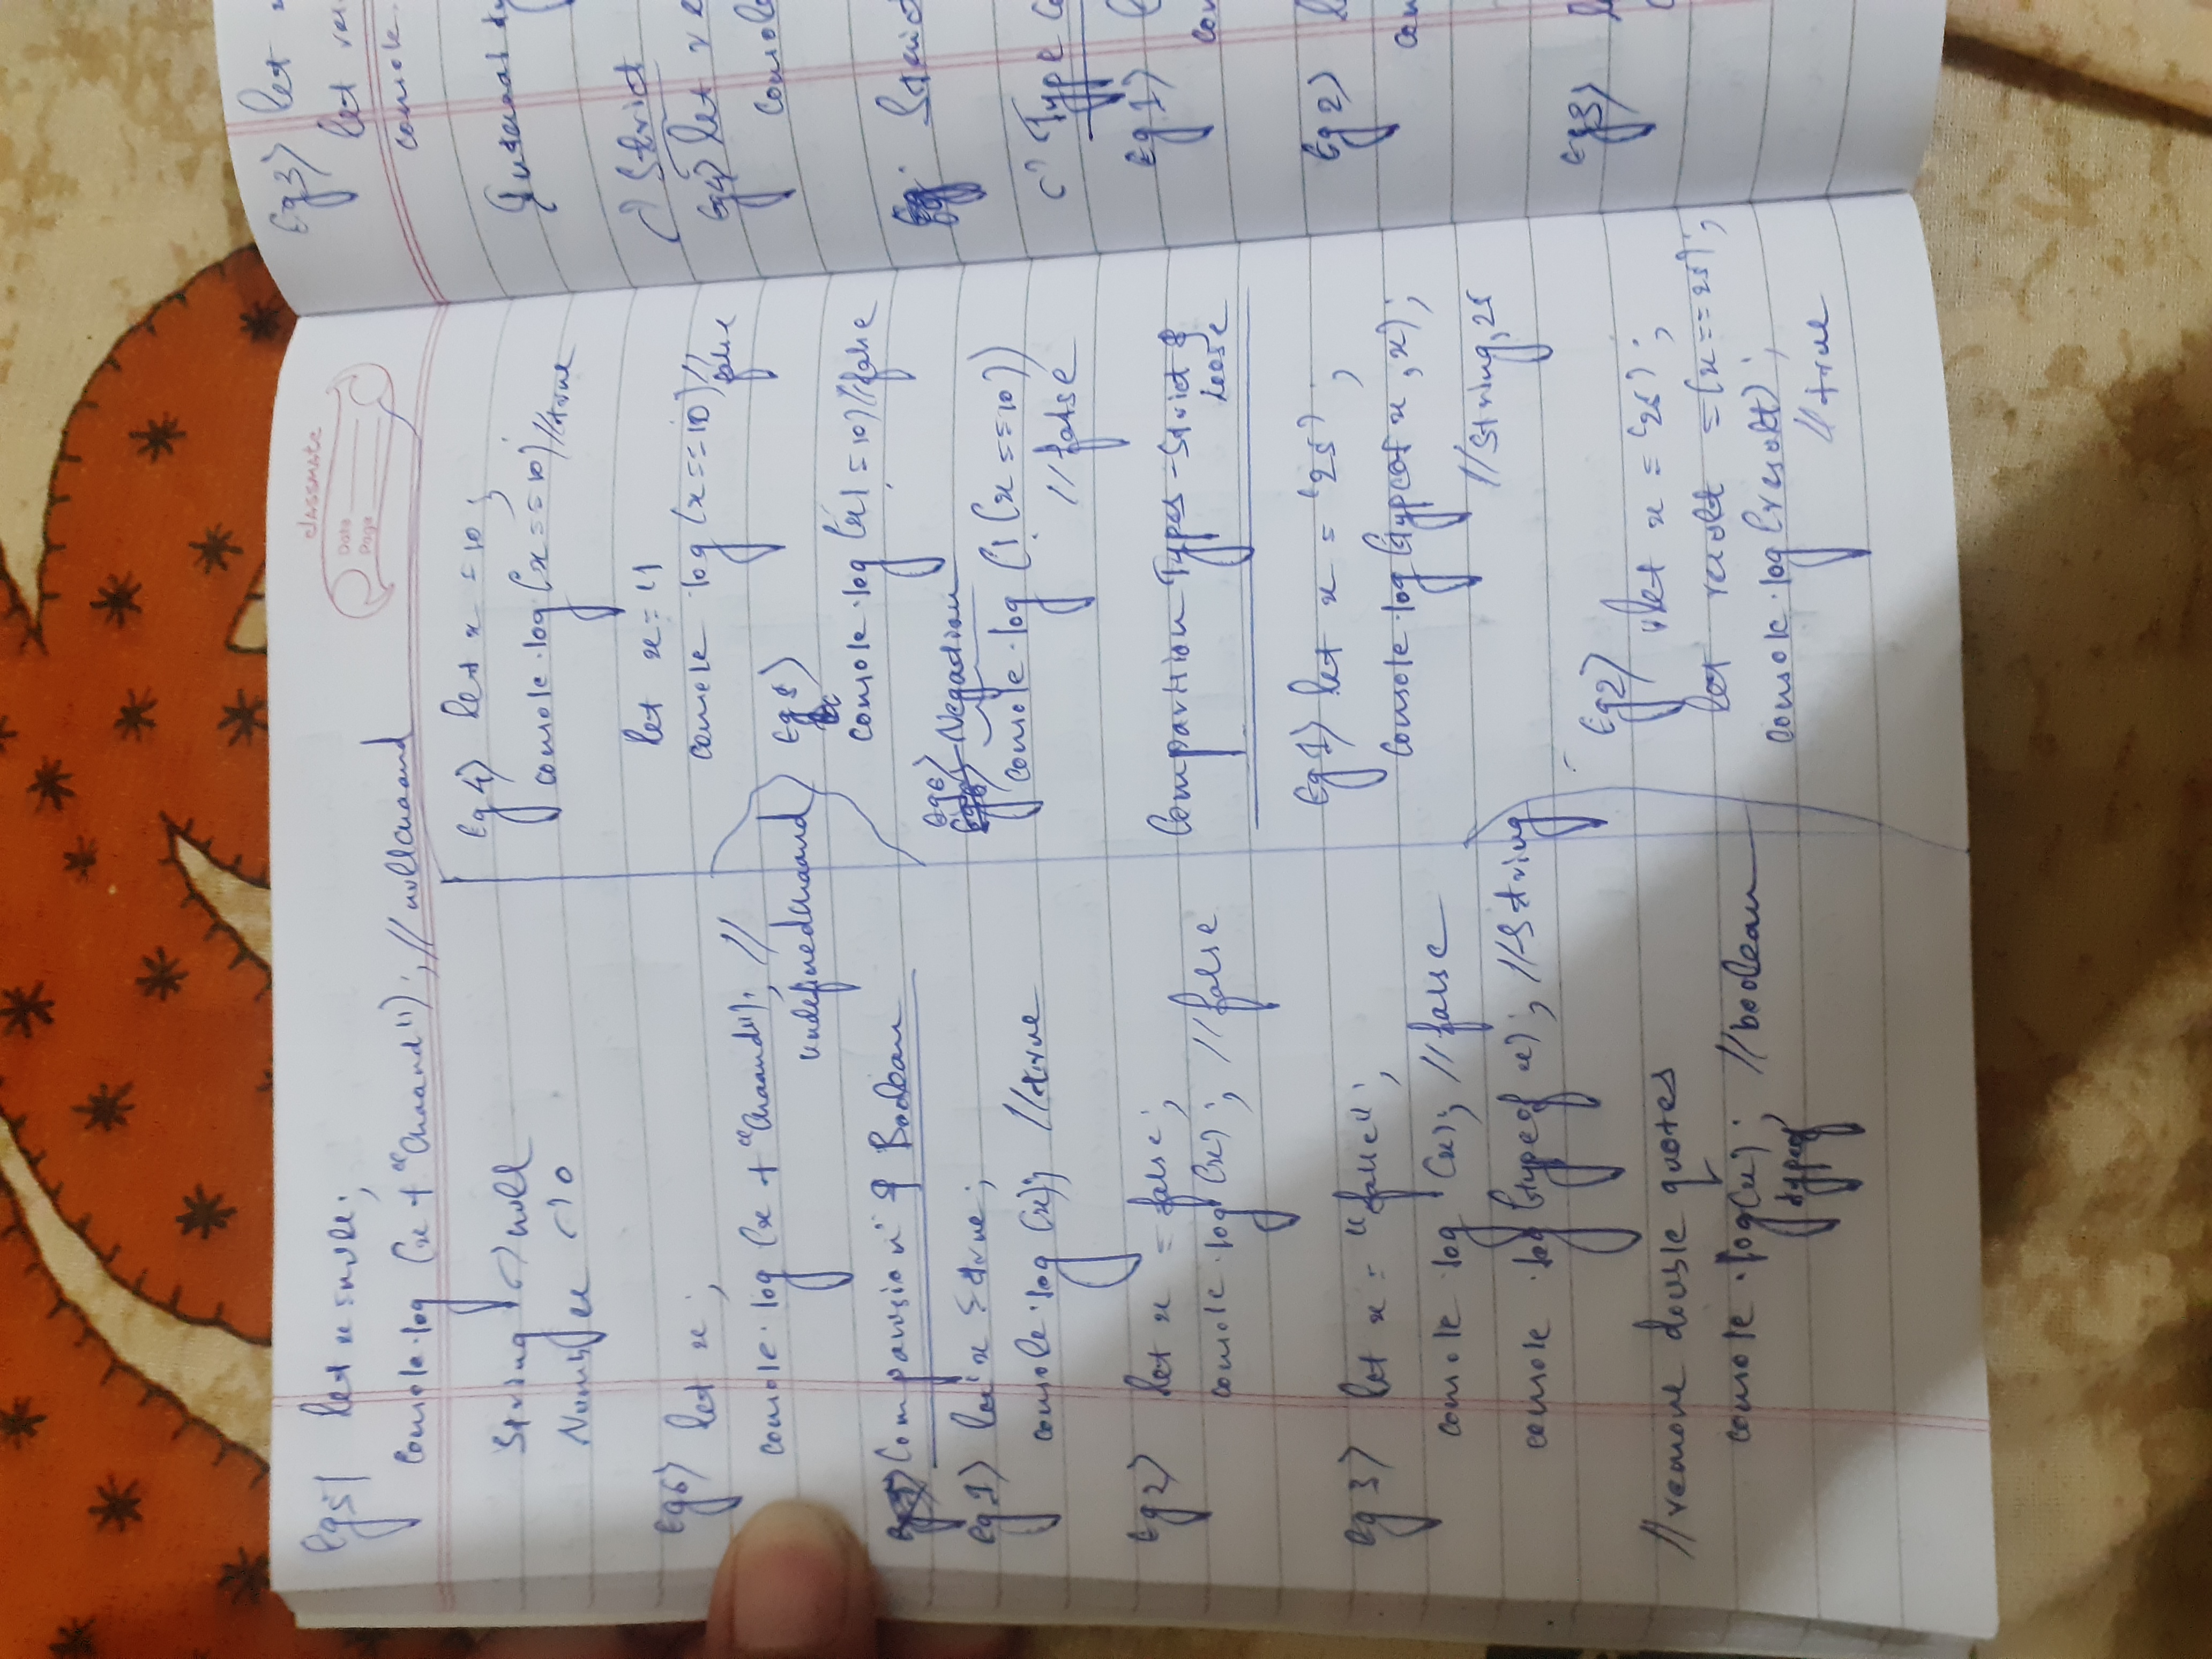 Eg5) let x=null;
console.log (x + "Chaand"); //nullchaand
String → null
Number → 0
Eg6) let x;
console.log (x + "Chaand"); //
undefinedChaand
Comparision & Boolean
Eg1) let x = true;
console.log (x); //true
Eg2) let x = false;
console.log (x); //false
Eg3) let x = "false";
console.log (x); //false
console.log (typeof x); //String
//remove double quotes
console.log(x); //boolean
typeof
classmate
Date
Page
Eg4) let x = 10;
console.log (x == 10) //true
let x = 11
console log (x == 10) //
false
Eg5)
console.log (x! = 10) //false
Eg6) Negation
console.log (! (x == 10))
//false
Comparision Types - Strict &
loose
Eg1) let x = '25';
console.log (typeof x, x);
//String, 25
Eg2)
let x = '25';
let result = (x == 25);
console.log (result);
//true
Eg3) let
let
console.
Strict
Eg4) let
Strict
Type
Eg1)
Eg2)
Eg3)